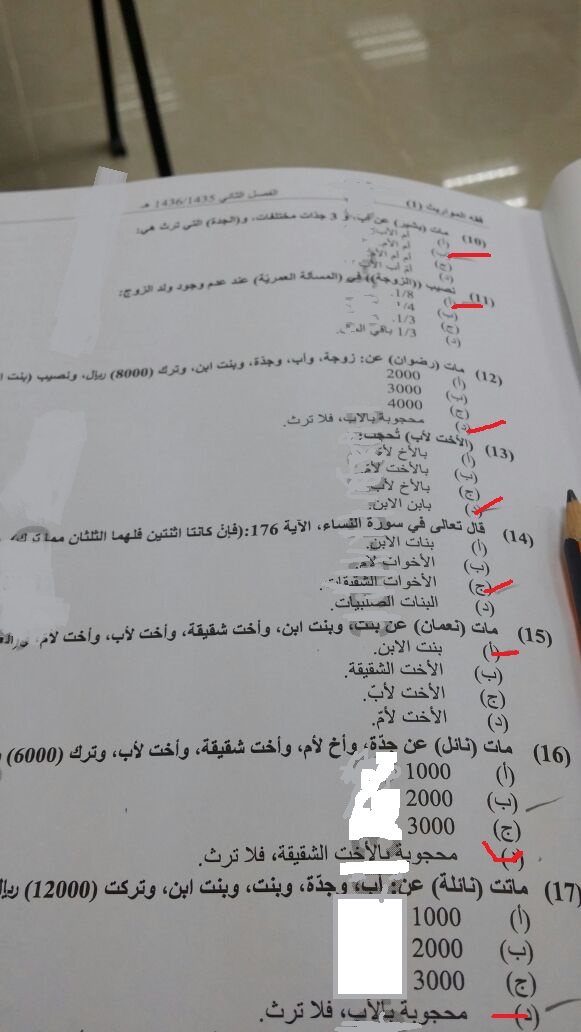 الفصل الثاني 1436/1435 هـ
فقه المواريث (1)
(10) مات (بشير) عن أب، و 3 جدات مختلفات، و(الجدة) التي ترث هي:
(أ) أم الأب.
(ب) أم الأم.
(ج) أم أم
(د) أم أب
(11) نصيب ((الزوجة)) في (المسألة العمرية) عند عدم وجود ولد الزوج:
(أ) 1/8.
(ب) 1/4
(ج) 1/3.
(د) 1/3 باقي
(12) مات (رضوان) عن: زوجة، وأب، وجدة، وبنت ابن، وترك (8000) ريال، ونصيب (بنت
(أ) 2000
(ب) 3000
(ج) 4000
(د) محجوبة بالأب، فلا ترث.
(13) (الأخت لأب) تُحجب:
(أ) بالأخ
(ب) بالأخت
(ج) بالأخ لأب
(د) بابن الابن.
(14) قال تعالى في سورة النساء، الآية 176:(فإن كانتا اثنتين فلهما الثلثان مما ترك
(أ) بنات الابن.
(ب) الأخوات لأم.
(ج) الأخوات الشقيقات.
(د) البنات الصلبيات.
(15) مات (نعمان) عن بنت، وبنت ابن، وأخت شقيقة، وأخت لأب، وأخت لأم،
(أ) بنت الابن.
(ب) الأخت الشقيقة.
(ج) الأخت لأبّ.
(د) الأخت لأمّ.
(16) مات (نائل) عن جدّة، وأخ لأم، وأخت شقيقة، وأخت لأب، وترك (6000)
(أ) 1000
(ب) 2000
(ج) 3000
(د) محجوبة بالأخت الشقيقة، فلا ترث.
(17) ماتت (نائلة) عن: أب، وجدّة، وبنت، وبنت ابن، وتركت (12000) ريال
(أ) 1000
(ب) 2000
(ج) 3000
(د) محجوبة بالأب، فلا ترث.